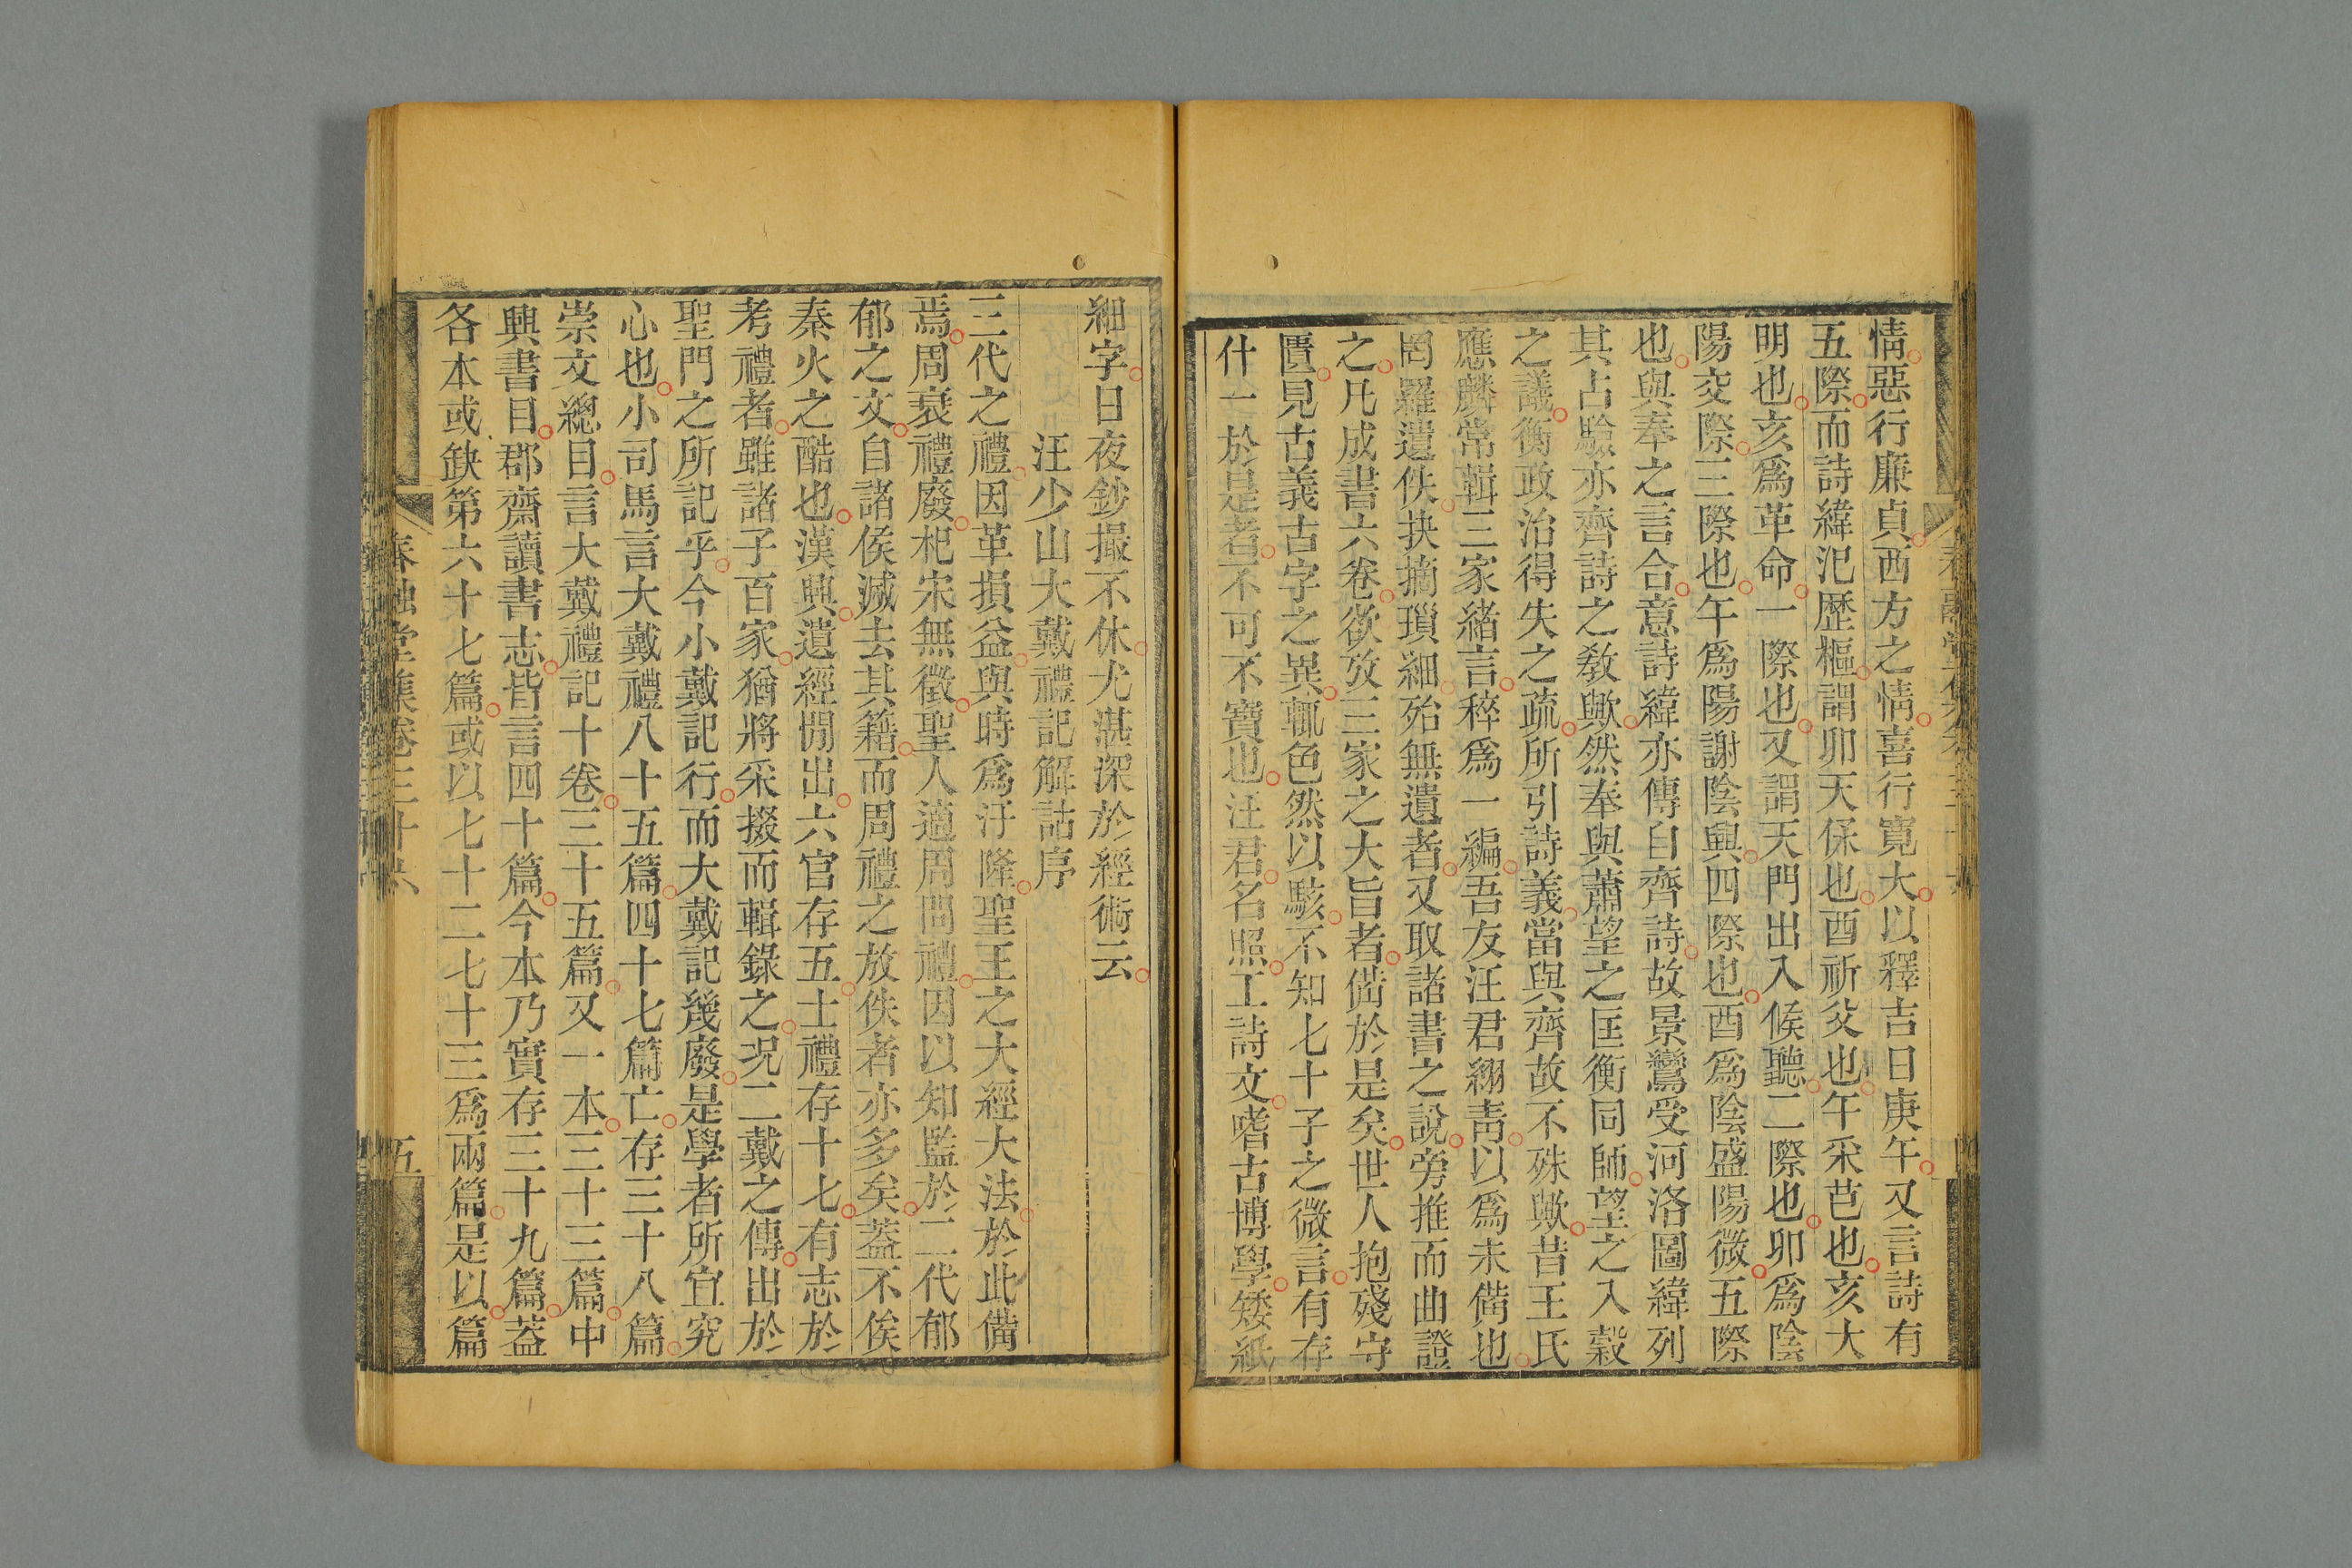 情惡行廉貞西方之情喜行寛大以釋吉日庚午又言詩有
五際而詩緯氾歴樞謂卯天保也酉祈父也午采芑也亥大
明也亥爲革命一際也又謂天門出入候聽二際也卯爲陰
陽交際三際也午爲陽謝陰興四際也酉爲陰盛陽微五際
也與奉之言合意詩緯亦傳自齊詩故景鸞受河洛圖緯列
其占驗亦齊詩之敎歟然奉與蕭望之匡衡同師望之入穀
之議衡政治得失之疏所引詩義當與齊故不殊歟昔王氏
應麟常輯三家緒言稡爲一編吾友汪君翊靑以爲未備也
罔羅遺佚抉摘瑣細殆無遺者又取諸書之說旁推而曲證
之凡成書六卷欲攷三家之大旨者備於是矣世人抱殘守
匱見古義古字之異輒色然以駭不知七十子之微言有存
什一於是者不可不寶也汪君名照工詩文嗜古博學矮紙
細字日夜鈔撮不休尤湛深於經術云
汪少山大戴禮記解詁序
三代之禮因革損益與時爲汙隆聖王之大經大法於此備
焉周衰禮廢杞宋無徵聖人適周問禮因以知監於二代郁
郁之文自諸侯滅去其籍而周禮之放佚者亦多矣蓋不俟
秦火之酷也漢興遺經閒出六官存五士禮存十七有志於
考禮者雖諸子百家猶將采掇而輯錄之况二戴之傳出於
聖門之所記乎今小戴記行而大戴記幾廢是學者所宜究
心也小司馬言大戴禮八十五篇四十七篇亡存三十八篇
崇文總目言大戴禮記十卷三十五篇又一本三十三篇中
興書目郡齋讀書志皆言四十篇今本乃實存三十九篇蓋
各本或缺第六十七篇或以七十二七十三爲兩篇是以篇
春融堂集卷三十六
五